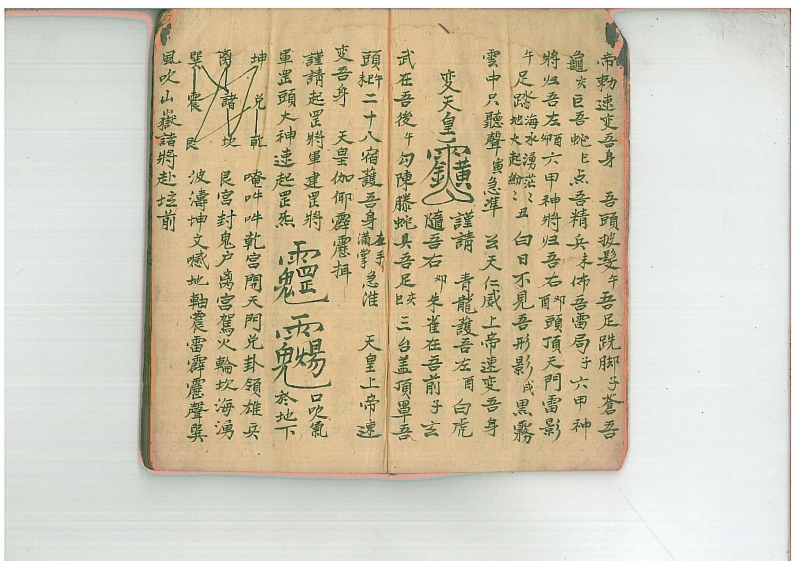 帝勅速变吾身 吾頭披髮午吾足跣脚子蒼吾
龜亥巨吾蛇巳点吾精兵未佈吾雷局子六甲神
將归吾左酉卯六甲神將归吾右酉卯頭頂天門雷影
午足踏海水湧茫〻地火起紛〻丑白日不見吾形影戌黒霧
雲中只聽聲寅急准 公天仁威上帝速变吾身
变天皇 謹請 青龍護吾左酉白虎
隨吾右卯朱雀在吾前子玄
武在吾後午勾陳螣蛇具吾足亥巳三台盖頂罩吾
頭午未二十八宿護吾身左手滿掌急准 天皇上帝速
变吾身 天皇伽𠆩霹靂揖
謹請起罡將軍建罡將 口吹氣
軍罡頭大神速起罡炁 於地下
坤 兑 乾 唵吽吽乾宮開天門兑卦領雄兵
离 諸 坎 艮宮封鬼户离宮駕火輪坎海湧
巽 震 艮 波濤坤文喊地軸震雷霹靂聲巽
風吹山嶽諸將赴坛前